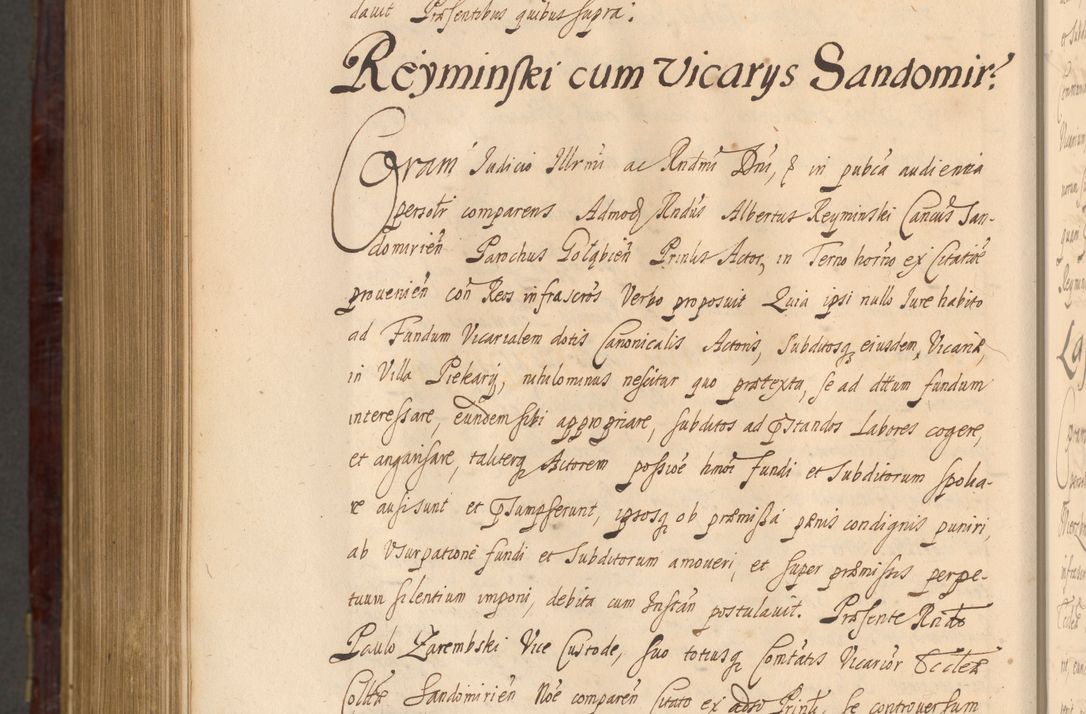 davit Præsentibus quibus supra.
Reÿminski cum Vicarys Sandomir:
Coram Iudicio Illrmi ac Rndmi Dni, & in pubca audientia
persolr comparens Admod Rndus Albertus Reyminski Cancus San-
domirien Parochus Gołąbien Prinlis Actor, in Terno horno ex Citatioe
provenien con Reos infrascros Verbo proposuit Quia ipsi nullo Iure habito
ad Fundum Vicarialem dotis Canonicalis Actoris, Subditosq eiusdem Vicariæ,
in Villa Piekary, nihilominus nescitur quo prætextu, se ad dttum fundum
interessare, eundem sibi appropriare, subditos ad pstandos Labores cogere,
et angarisare, taliterq Actorem possioe hmoi fundi et Subditorum spolia-
re ausi sunt et psumpserunt, ipsosq ob præmissa pænis condignis puniri,
ab Vsurpatione fundi et Subditorum amoveri, et super præmissis perpe-
tuum silentium imponi, debita cum Instan postulavit. Præsente Rndo
Paulo Zarembski Vice Custode, suo totiusq Comtatis Vicarior Eccleæ
Colltæ Sandomirien Noe comparen Citato ex adso Prinli, se controversum